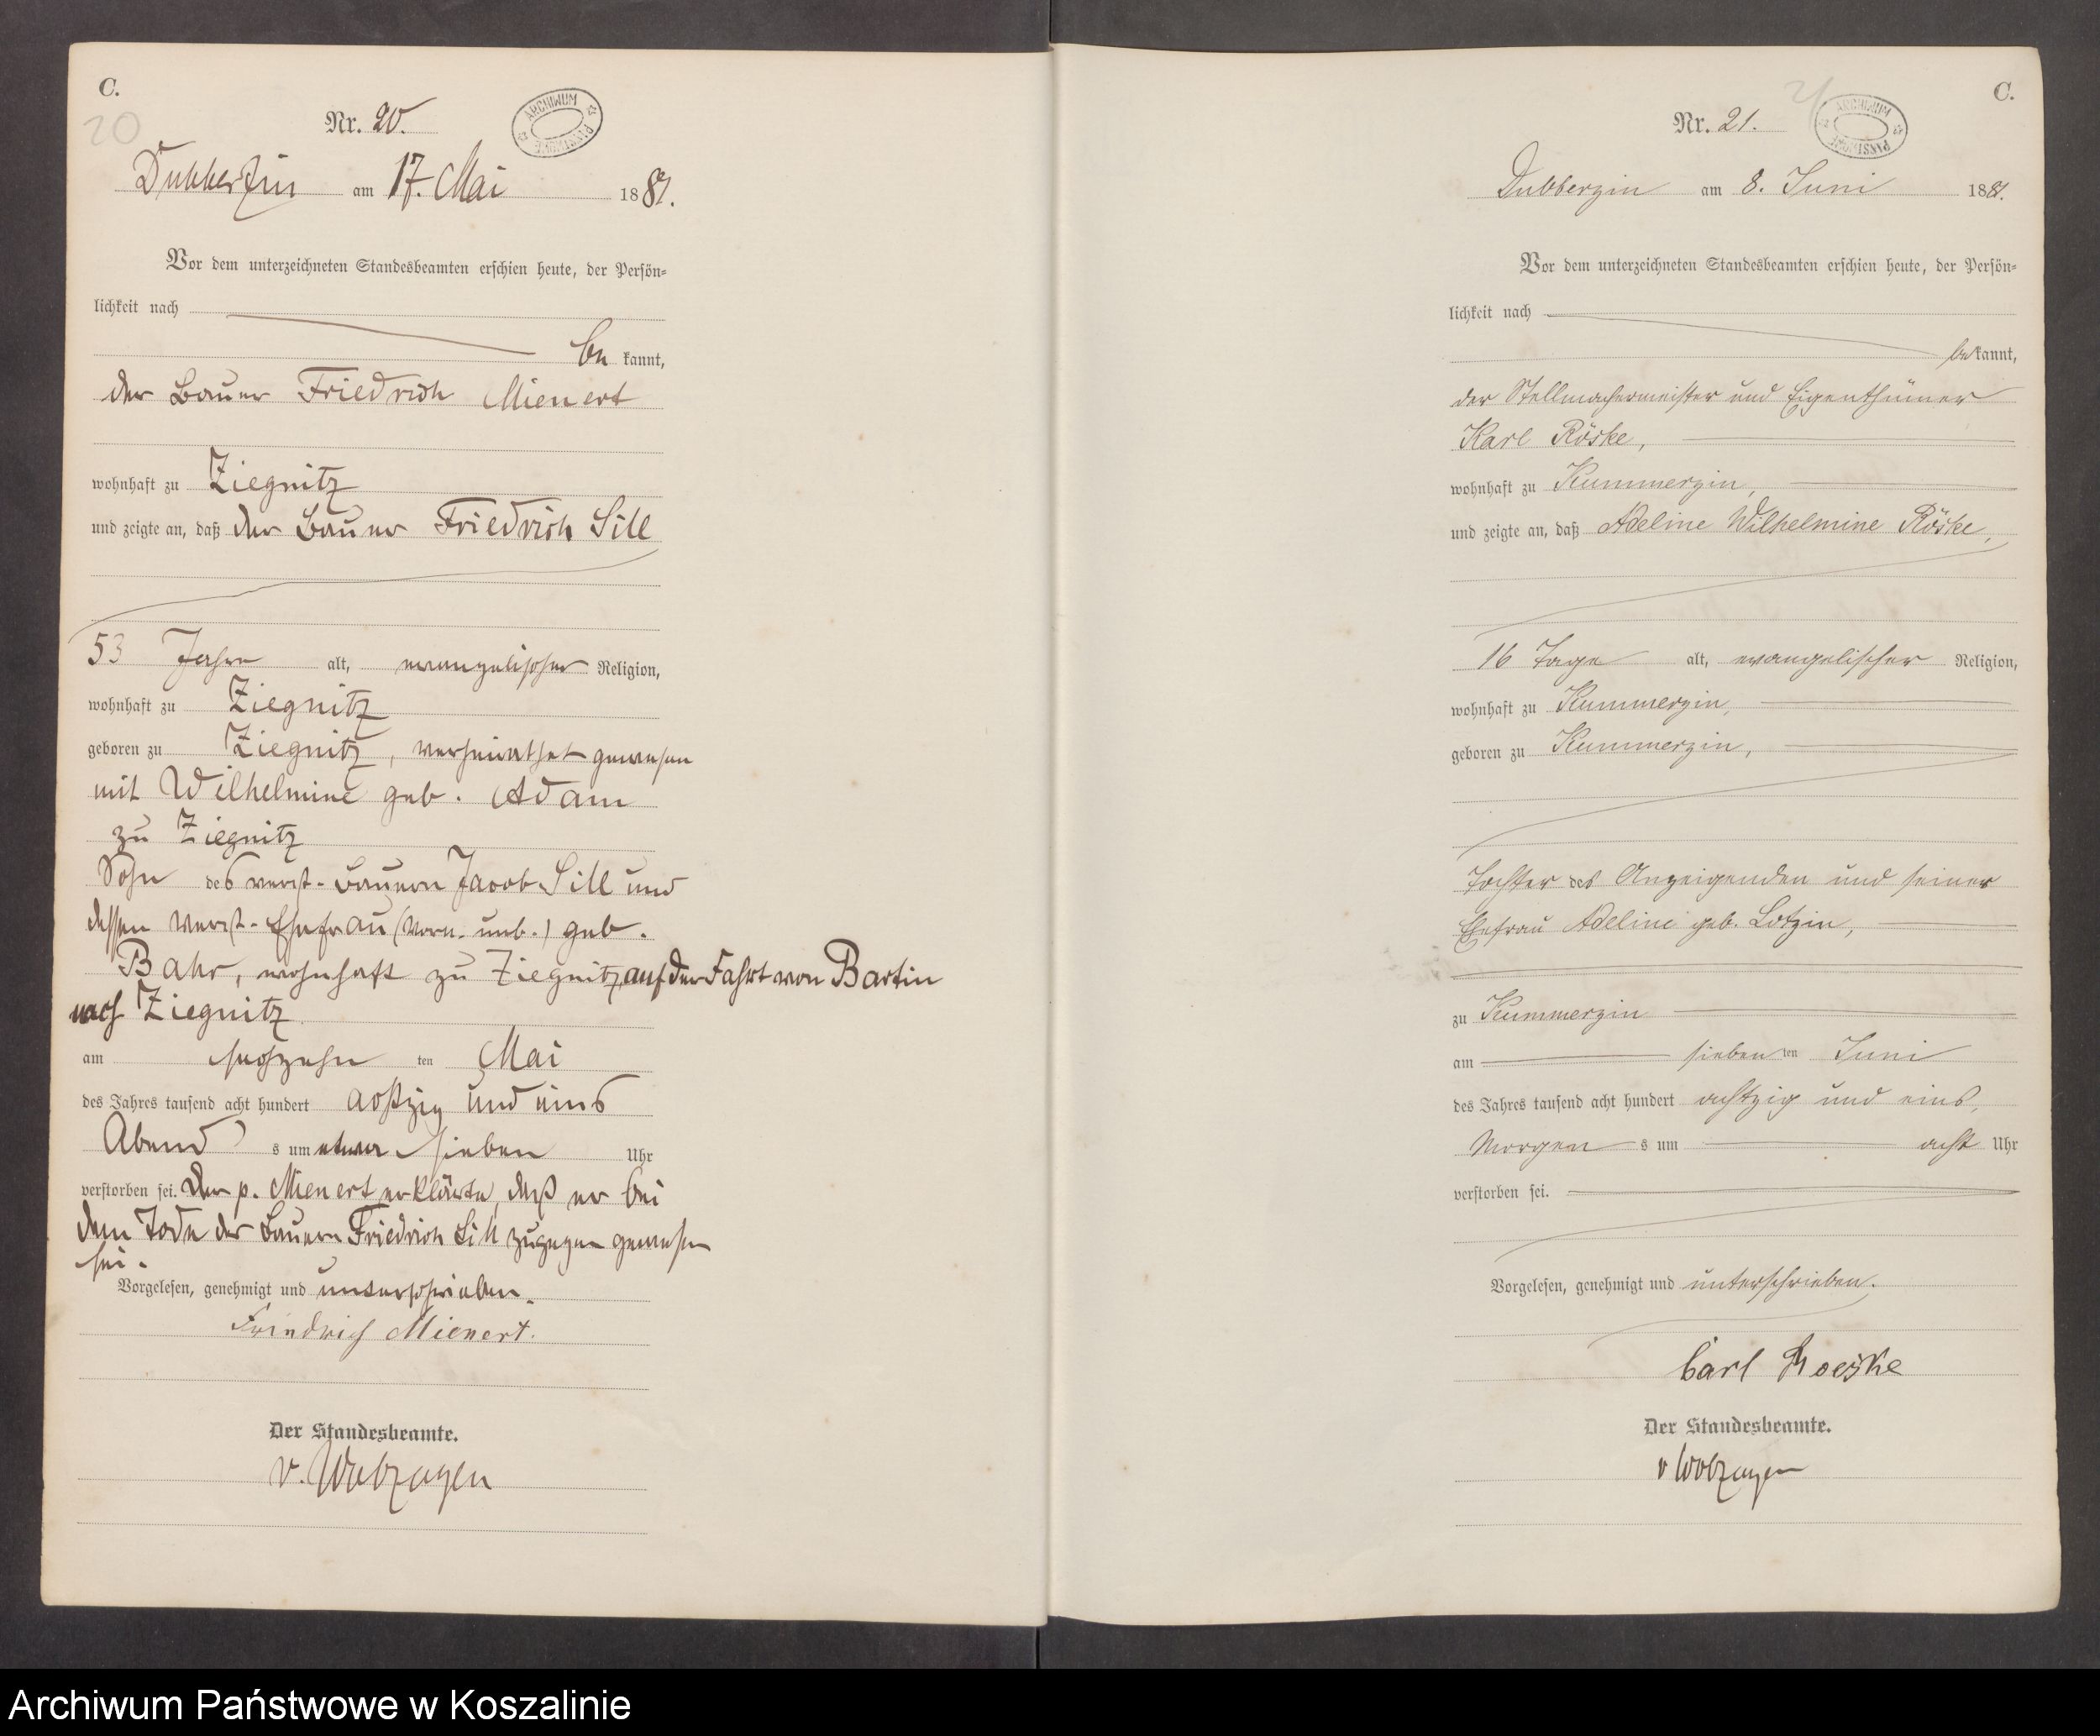 C.
20
Nr. 20.
ARCHIWUM PAŃSTWOWE
Dubberzin am 17. Mai 1881.
Vor dem unterzeichneten Standesbeamten erschien heute, der Persön-
lichkeit nach
be kannt,
der Bauer Friedrich Mienert
wohnhaft zu Ziegnitz
und zeigte an, daß der Bauer Friedrich Sill
53 Jahre alt, evangelischer Religion,
wohnhaft zu Ziegnitz
geboren zu Ziegnitz, verheirathet gewesen
mit Wilhelmine geb. Adam
zu Ziegnitz
Sohn des verst. Bauern Jacob Sill und
dessen verst. Ehefrau (Vorn. unb.) geb.
Bahr, wohnhaft zu Ziegnitz, auf der Fahrt von Bartin
nach Ziegnitz
am sechzehn ten Mai
des Jahres tausend acht hundert achtzig und eins
Abend s um etwa sieben Uhr
verstorben sei. Der p. Mienert erklärte, daß er bei
dem Tode des Bauern Friedrich Sill zugegen gewesen
sei.
Vorgelesen, genehmigt und unterschrieben.
Friedrich Mienert.
Der Standesbeamte.
C.
21
Nr. 21.
ARCHIWUM PAŃSTWOWE
Dubberzin am 8. Juni 1881.
Vor dem unterzeichneten Standesbeamten erschien heute, der Persön-
lichkeit nach
bekannt,
der Stellmachermeister und Eigenthümer
Karl Röske,
wohnhaft zu Kummerzin,
und zeigte an, daß Adeline Wilhelmine Röske,
16 Tage alt, evangelischer Religion,
wohnhaft zu Kummerzin,
geboren zu Kummerzin,
Tochter des Anzeigenden und seiner
Ehefrau Adeline geb. Lotzin,
zu Kummerzin
am sieben ten Juni
des Jahres tausend acht hundert achtzig und eins,
Morgen s um acht Uhr
verstorben sei.
Vorgelesen, genehmigt und unterschrieben.
Carl Roeske
Der Standesbeamte.
Archiwum Państwowe w Koszalinie